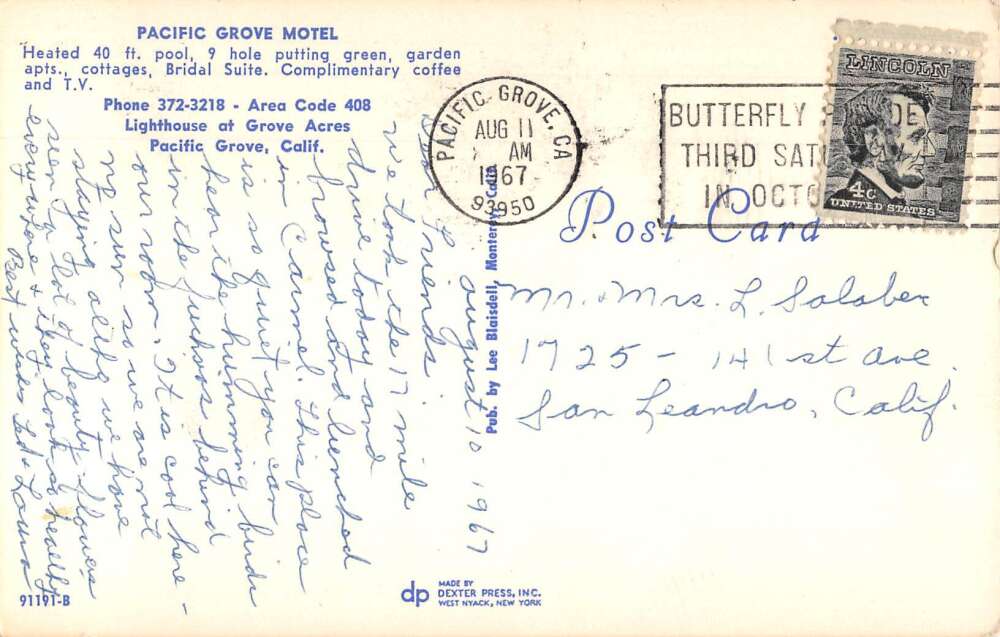 PACIFIC GROVE MOTEL
Heated 40 ft. pool, 9 hole putting green, garden
apts., cottages, Bridal Suite. Complimentary coffee
and T.V.
Phone 372-3218 - Area Code 408
Lighthouse at Grove Acres
Pacific Grove, Calif.
august 10 1967
Dear Friends:
we took the 17 mile
drive today and
browsed and lunched
in Carmel. This place
is so quiet you can
hear the humming birds
in the fuchsias behind
our room. It is cool here -
no sun so we are not
staying altho we have
seen a lot of beauty. Flowers
everywhere & they look so healthy
Best wishes Ted & Laura
91191-B
Pub. by Lee Blaisdell, Monterey, Calif.
dp
MADE BY
DEXTER PRESS, INC.
WEST NYACK, NEW YORK
PACIFIC GROVE, CA
AUG 11
AM
1967
93950
BUTTERFLY
THIRD SAT
IN OCTO
LINCOLN
4c
UNITED STATES
Post Card
Mr. & Mrs. L. Salaber
1725 - 141st ave.
San Leandro, Calif.